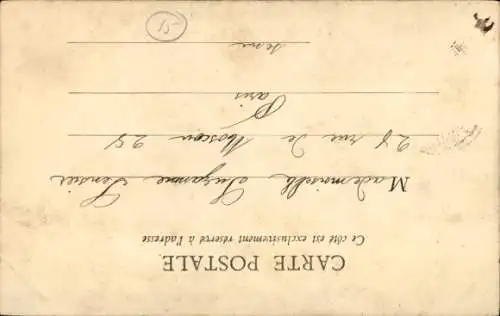 CARTE POSTALE
Ce côté est exclusivement réservé à l'adresse
Mademoiselle Suzanne Tensier
28 rue de Moscou 28
Paris
15